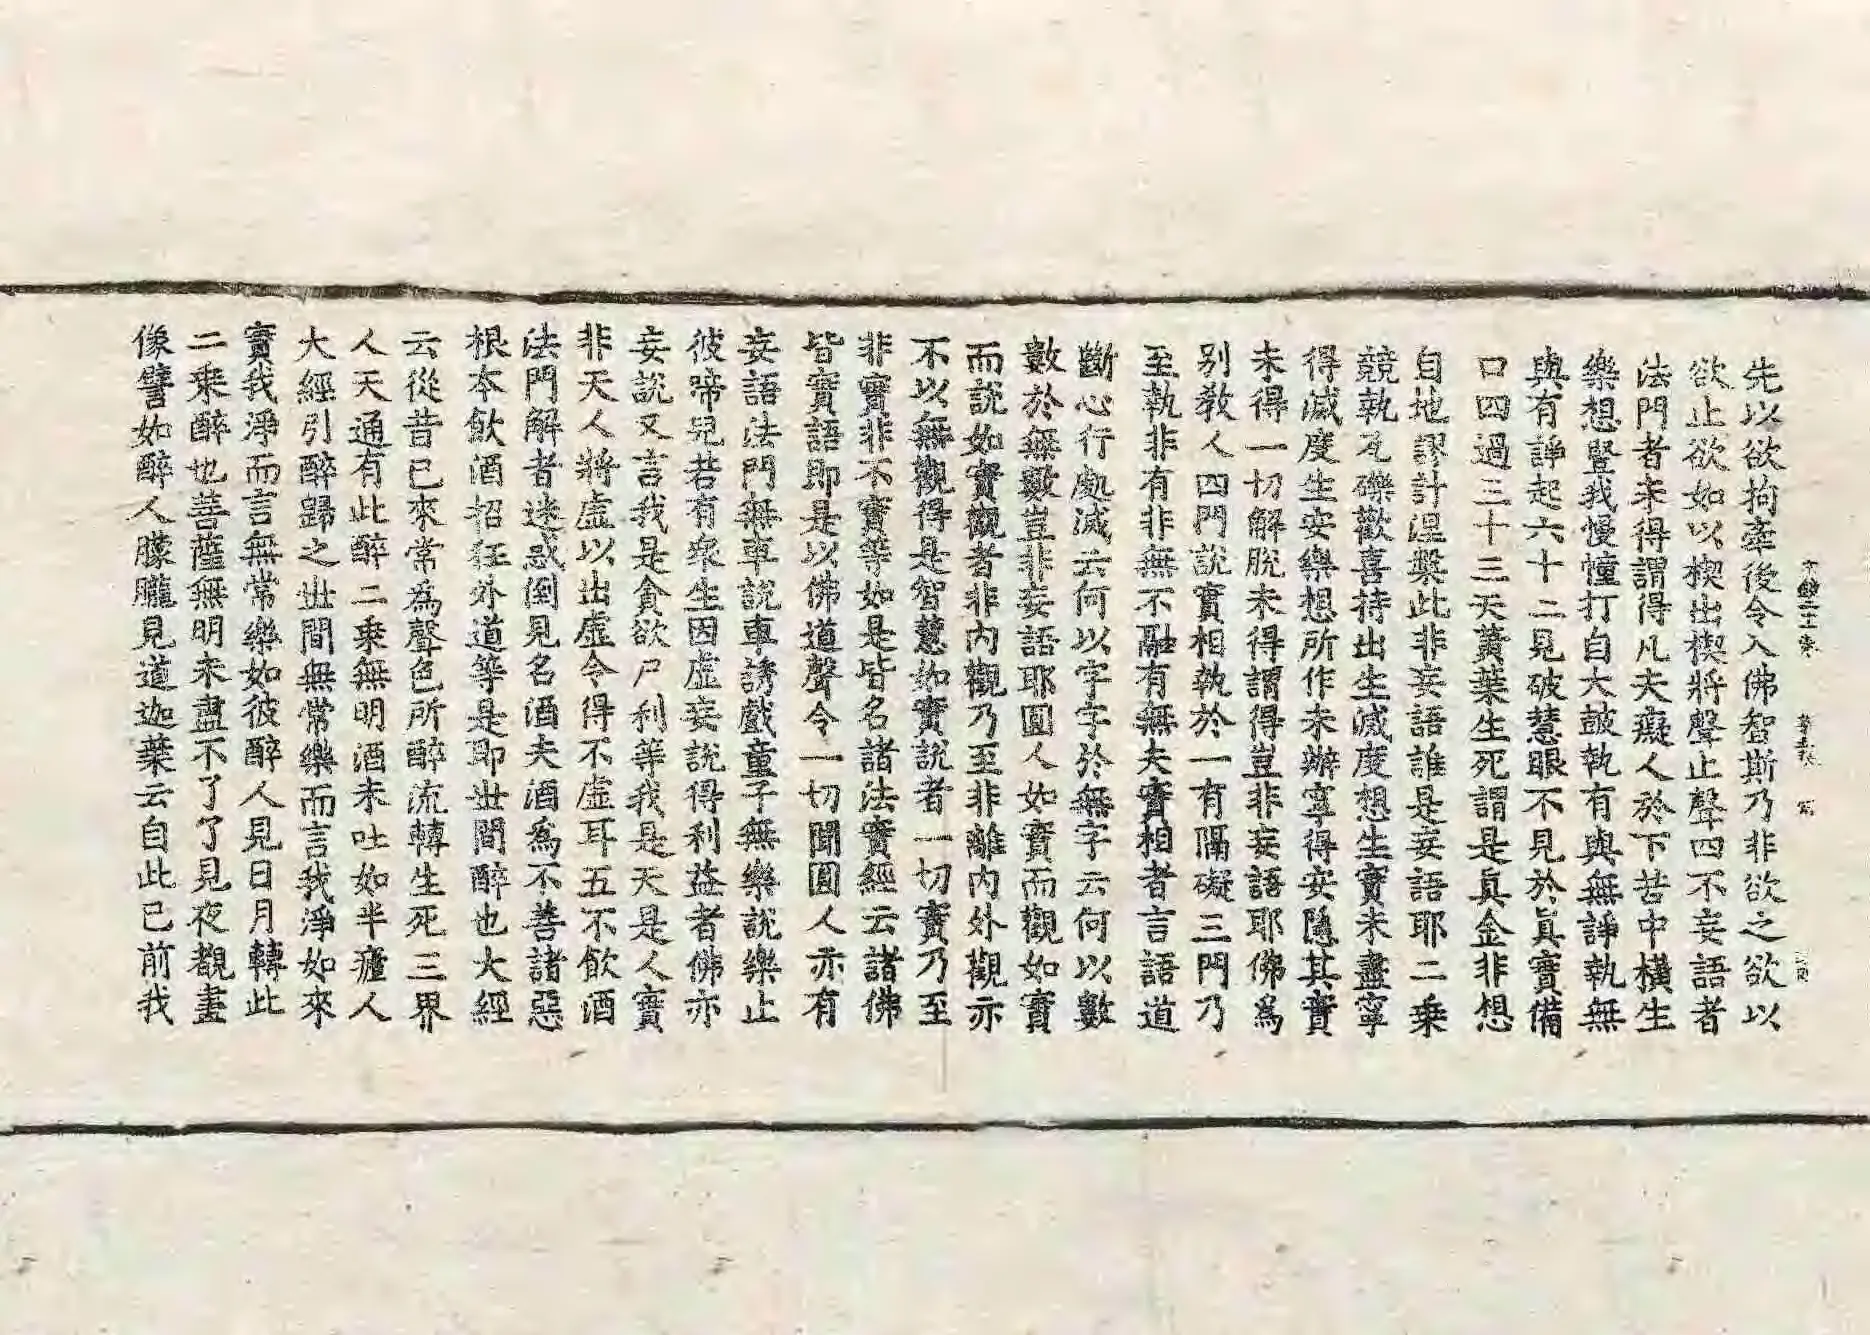 先以欲拘牽後令入佛智斯乃非欲之欲以
欲止欲如以楔出楔將聲止聲四不妄語者
法門者未得謂得凡夫癡人於下苦中橫生
樂想豎我慢幢打自大皷執有與無諍執無
與有諍起六十二見破慧眼不見於眞實備
口四過三十三天黃葉生死謂是眞金非想
自地謬計涅槃此非妄語誰是妄語耶二乗
競執瓦礫歡喜持出生滅度想生實未盡寧
得滅度生安樂想所作未辦寧得安隱其實
未得一切解脫未得謂得豈非妄語耶佛爲
别敎人四門說實相執於一有隔礙三門乃
至執非有非無不融有無夫實相者言語道
斷心行處滅云何以字字於無字云何以數
數於無數豈非妄語耶圓人如實而觀如實
而說如實觀者非内觀乃至非離内外觀亦
不以無觀得是智慧如實說者一切實乃至
非實非不實等如是皆名諸法實經云諸佛
皆實語即是以佛道聲令一切聞圓人亦有
妄語法門無車說車誘戲童子無樂說樂止
彼啼兒若有衆生因虛妄說得利益者佛亦
妄說又言我是貪欲尸利等我是天是人實
非天人將虛以出虛令得不虛耳五不飲酒
法門解者迷惑倒見名酒夫酒爲不善諸惡
根本飲酒招狂外道等是即世間醉也大經
云從昔已來常爲聲色所醉流轉生死三界
人天通有此醉二乗無明酒未吐如半瘧人
大經引醉歸之世間無常樂而言我淨如來
實我淨而言無常樂如彼醉人見日月轉此
二乗醉也菩薩無明未盡不了了見夜覩畫
像譬如醉人朦朧見道迦葉云自此已前我